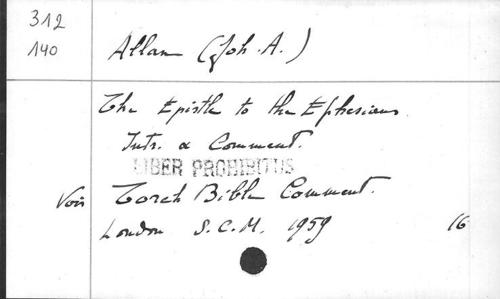 312
140
Allan (Joh. A.)
The Epistle to the Ephesians
Intr. & Comment.
LIBER PROHIBITUS
Voir Torch Bible Comment.
London S.C.M. 1959 16